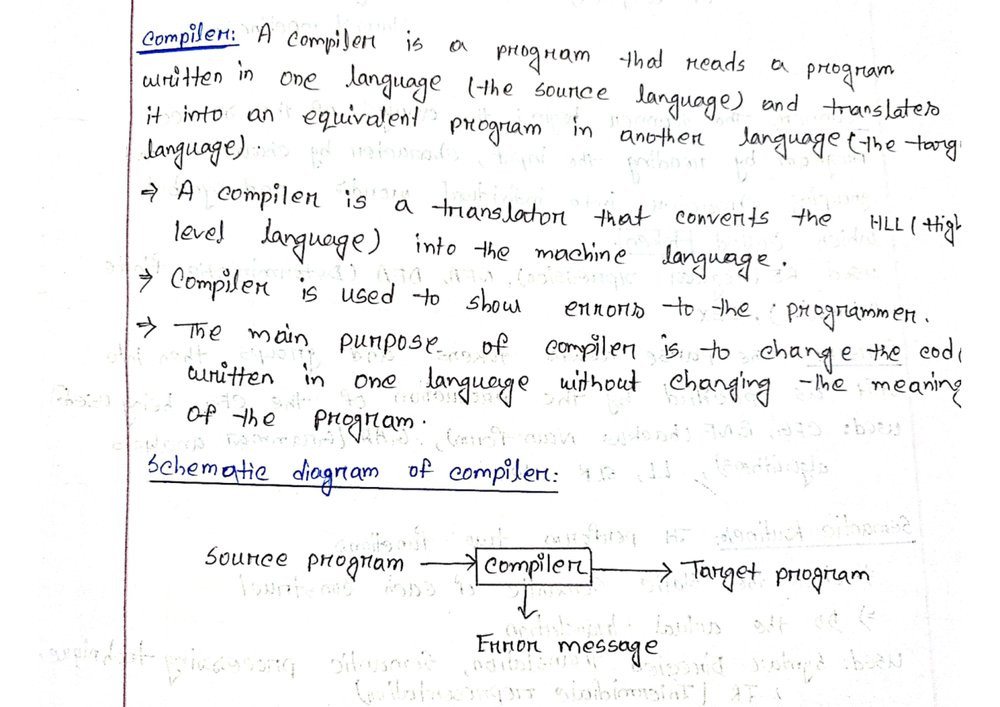 Compiler: A compiler is a program that reads a program
written in one language (the source language) and translates
it into an equivalent program in another language (the targ
language).
→ A compiler is a translator that converts the HLL (High
level language) into the machine language.
→ Compiler is used to show errors to the programmer.
→ The main purpose of compiler is to change the code
written in one language without changing the meaning
of the program.
Schematic diagram of compiler:
Source program → compiler → Target program
↓
Error message